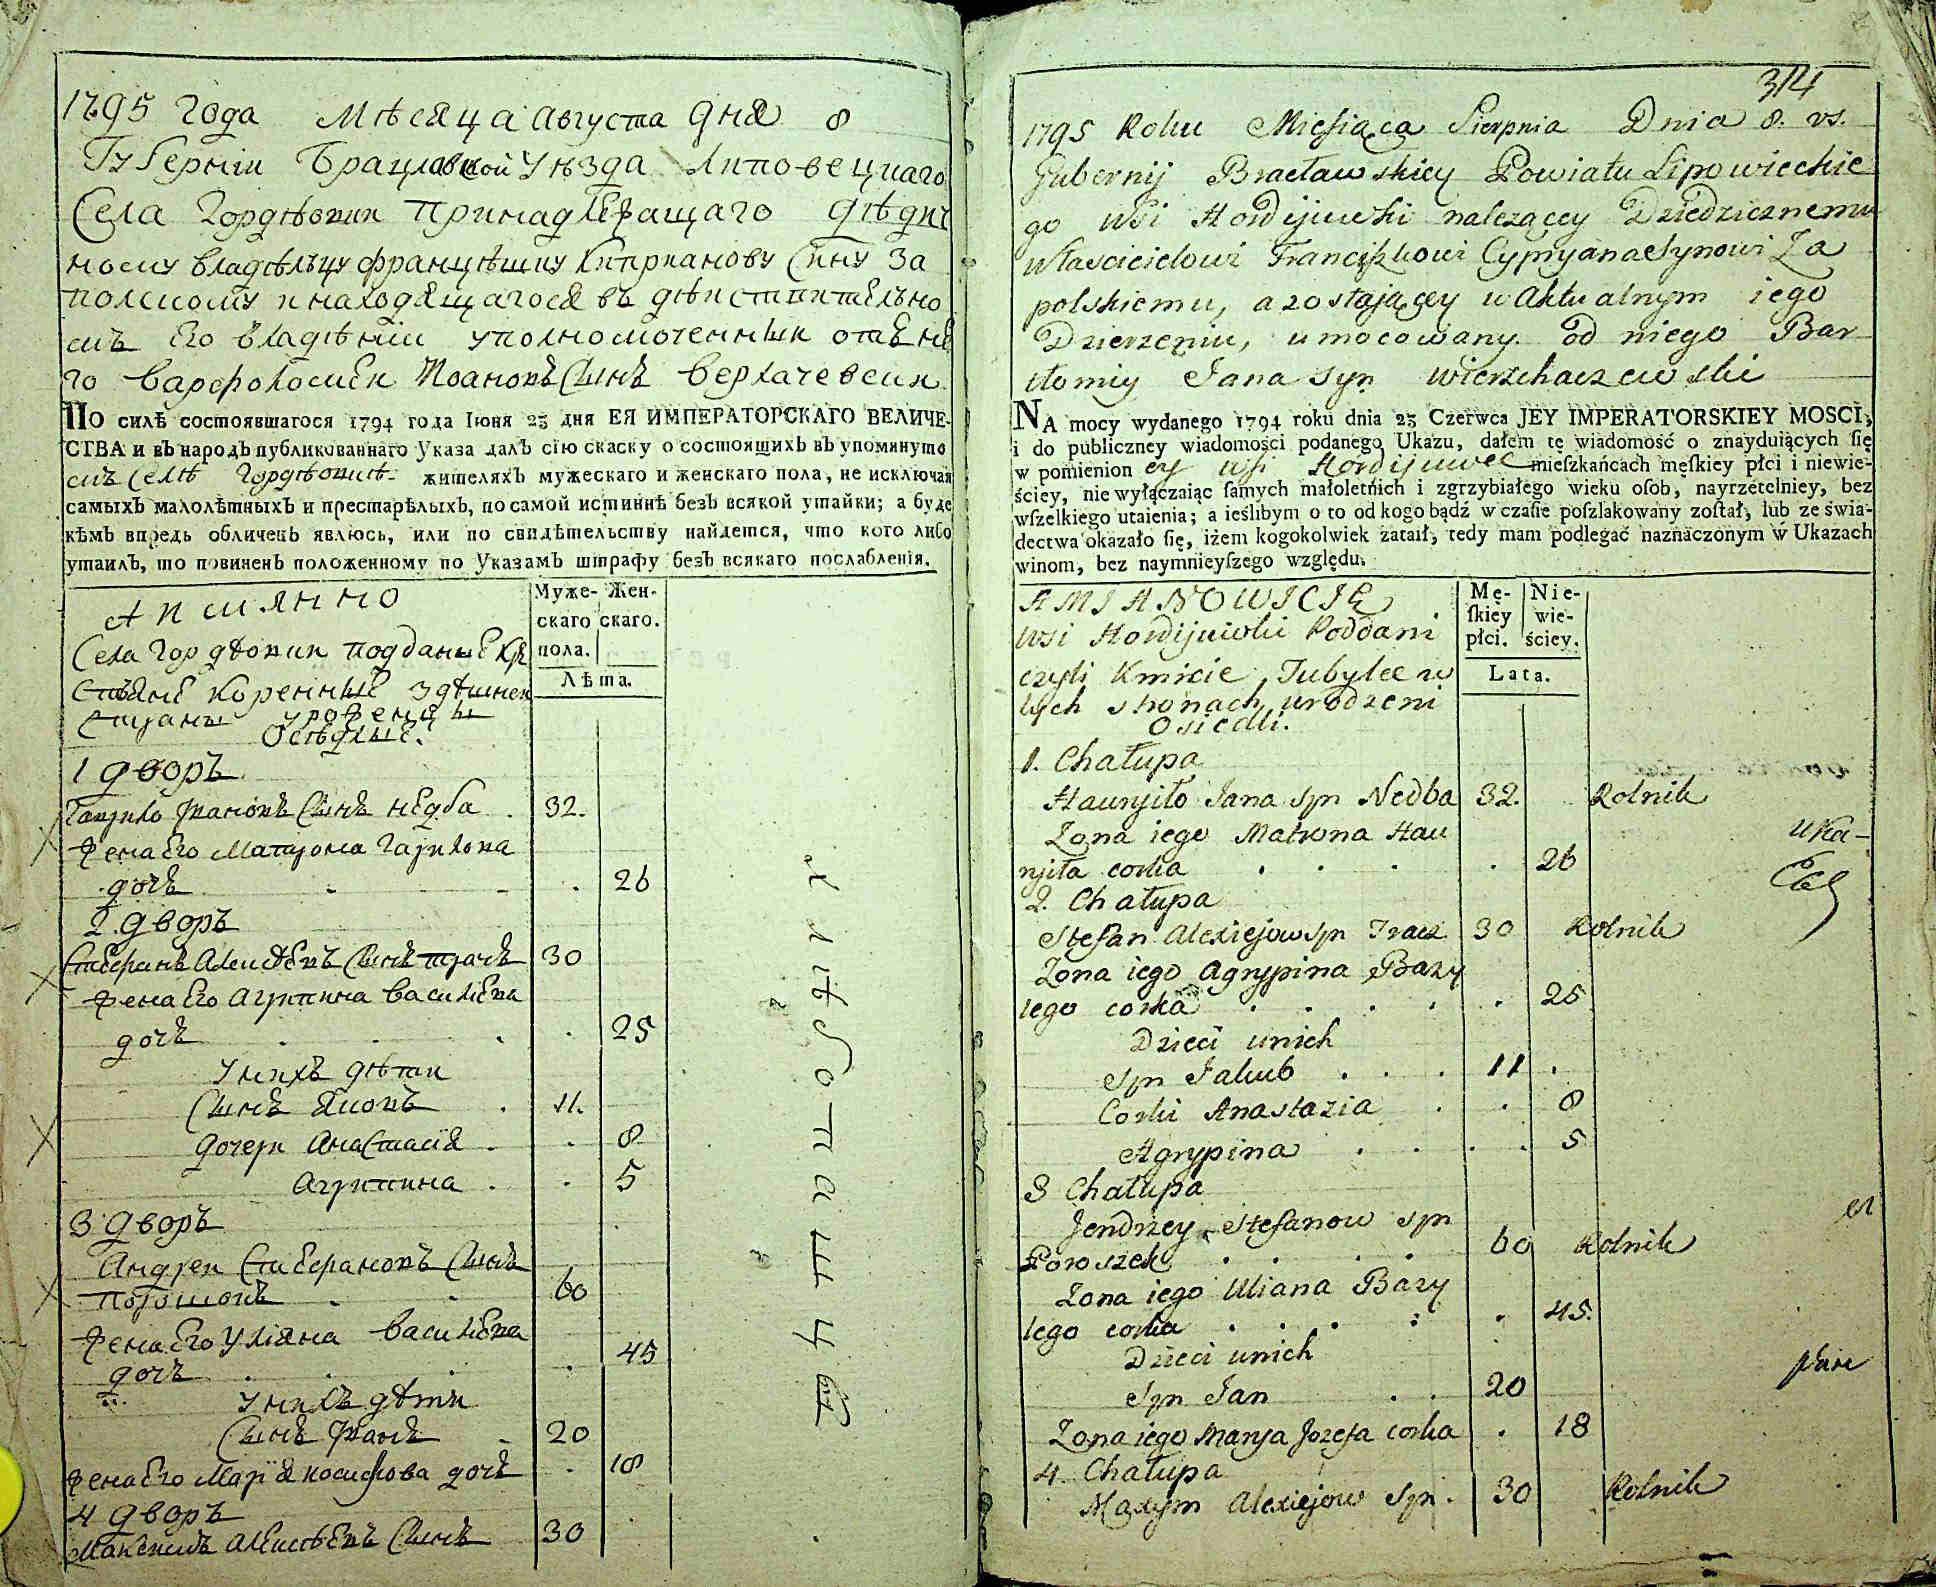 1795 Года Мѣсяца Августа дня 8
Губерніи Брацлавской Уѣзда Липовецкаго
Села Гордѣовки принадлежащаго дѣдич
ному владѣльцу Францѣшку Киприанову Сыну За
полскому и находящагося въ дѣиствительно
мъ Его владѣніи уполномоченныи отъ не
го Варфоломѣи Иоановъ Сынъ Верхачевски
ПО силѣ состоявшагося 1794 года Іюня 23 дня ЕЯ ИМПЕРАТОРСКАГО ВЕЛИЧЕ-
СТВА и въ народъ публикованнаго Указа далъ сію скаску о состоящихъ въ упомянуто
мъ селѣ Гордѣовкѣ жителяхъ мужескаго и женскаго пола, не исключая
самыхъ малолѣтныхъ и престарѣлыхъ, по самой истиннѣ безъ всякой утайки; а буде
кѣмъ впредь обличенъ явлюсь, или по свидѣтельству найдется, что кого либо
утаилъ, то повиненъ положенному по Указамъ штрафу безъ всякаго послабленія.
Муже- Жен-
скаго скаго.
пола.
Лѣта.
Села Гордѣовки подданые кре
стяне коренные здѣшнеи
страны уроженцы
осѣдлые.
1 дворъ
Гаврило Ивановъ Сынъ Недба . 32.
Жена Его Матрона Гаврилова
дочь . 26
2. дворъ
Стефанъ Алексѣевъ Сынъ Трачъ 30
Жена Его Агрипина Василева
дочь . 25
У нихъ дѣти
Сынъ Яковъ . 11.
дочери Анастасия . 8
Агрипина . 5
3 дворъ
Андреи Стефановъ Сынъ
Порошокъ 60
Жена Его Уляна Василева
дочь . 45
У нихъ дѣти
Сынъ Иванъ 20
Жена Его Мария Иосифова дочь . 18
4 дворъ
Максимъ Алексѣевъ Сынъ 30
314
1795 Roku Miesiąca Sierpnia Dnia 8. vs.
Gubernij Bracławskiey Powiatu Lipowieckie
go wsi Hordijuwki nalezącey Dziedzicznemu
Własicielowi Franciszkowi Cypryana Synowi Za
polskiemu, a zostającey w Aktualnym iego
Dzierzeniu, umocowany od niego Bar
tłomiy Jana Syn Wierzchaczewski
NA mocy wydanego 1794 roku dnia 23 Czerwca JEY IMPERATORSKIEY MOSCI,
i do publiczney wiadomości podanego Ukazu, dałem tę wiadomość o znayduiących się
w pomienioney wsi Hordijuwce mieſzkańcach męſkiey płci i niewie-
ściey, nie wyłączaiąc ſamych małoletnich i zgrzybiałego wieku oſob, nayrzetelniey, bez
wſzelkiego utaienia; a ieślibym o to od kogo bądź w czaſie poſzlakowany zoſtał, lub ze świa-
dectwa okazało ſię, iżem kogokolwiek zataił, tedy mam podlegać naznaczonym w Ukazach
winom, bez naymnieyſzego względu.
Mę- Nie-
ſkiey wie-
płci. ściey.
Lata.
wsi Hordijuwki Poddani
czyli Kmicie, Tubylce w
tych stronach urodzeni
Osiedli.
1. Chałupa
Hawryiło Jana Syn Nedba 32. Rolnik
Zona iego Matrona Haw
ryiła corka . 26
2. Chałupa
Stefan Alexiejow Syn Tracz 30 Rolnik
Zona iego Agrypina Bazy
lego corka . 25
Dzieci u nich
Syn Jakub . . . 11 .
Corki Anastazia . . 8
Agrypina . . . . 5
3 Chałupa
Jendrzey Stefanow Syn
Poroszek . . . . 60 Rolnik
Zona iego Uliana Bazy
lego corka . . . . 45.
Dzieci u nich
Syn Jan . . 20
Zona iego Marya Jozefa corka . 18
4. Chałupa
Maxym Alexiejow Syn . 30 Rolnik